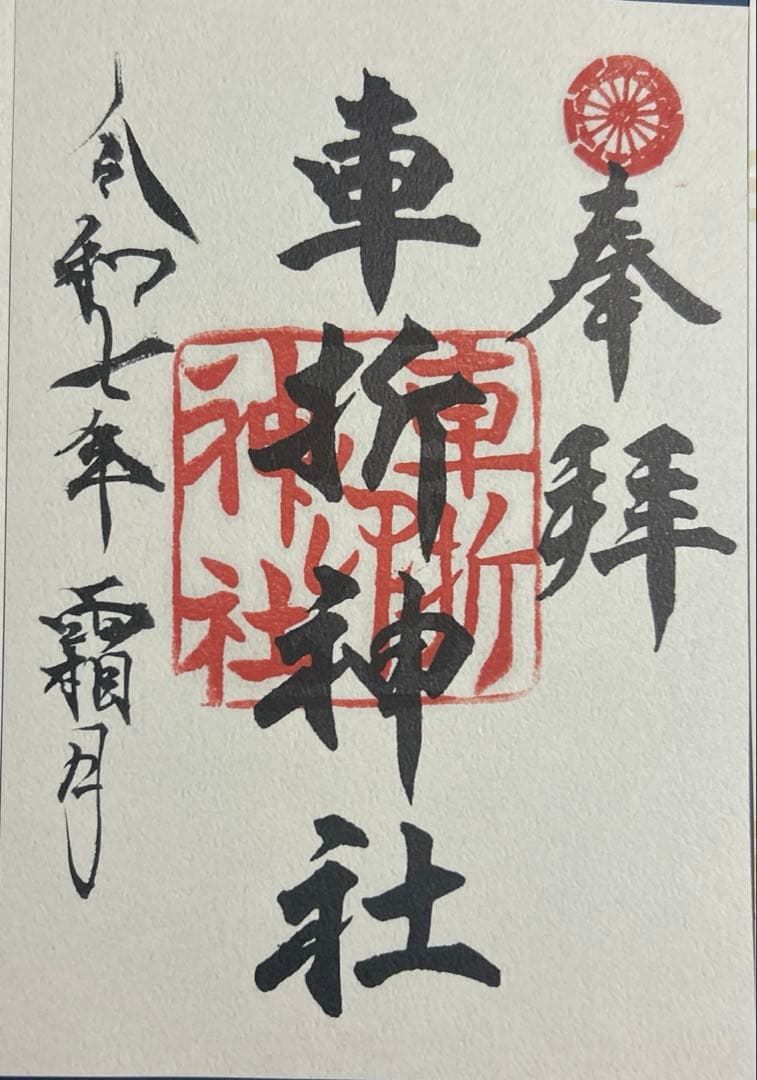 奉拝
車折神社
令和七年 霜月
車折
神社